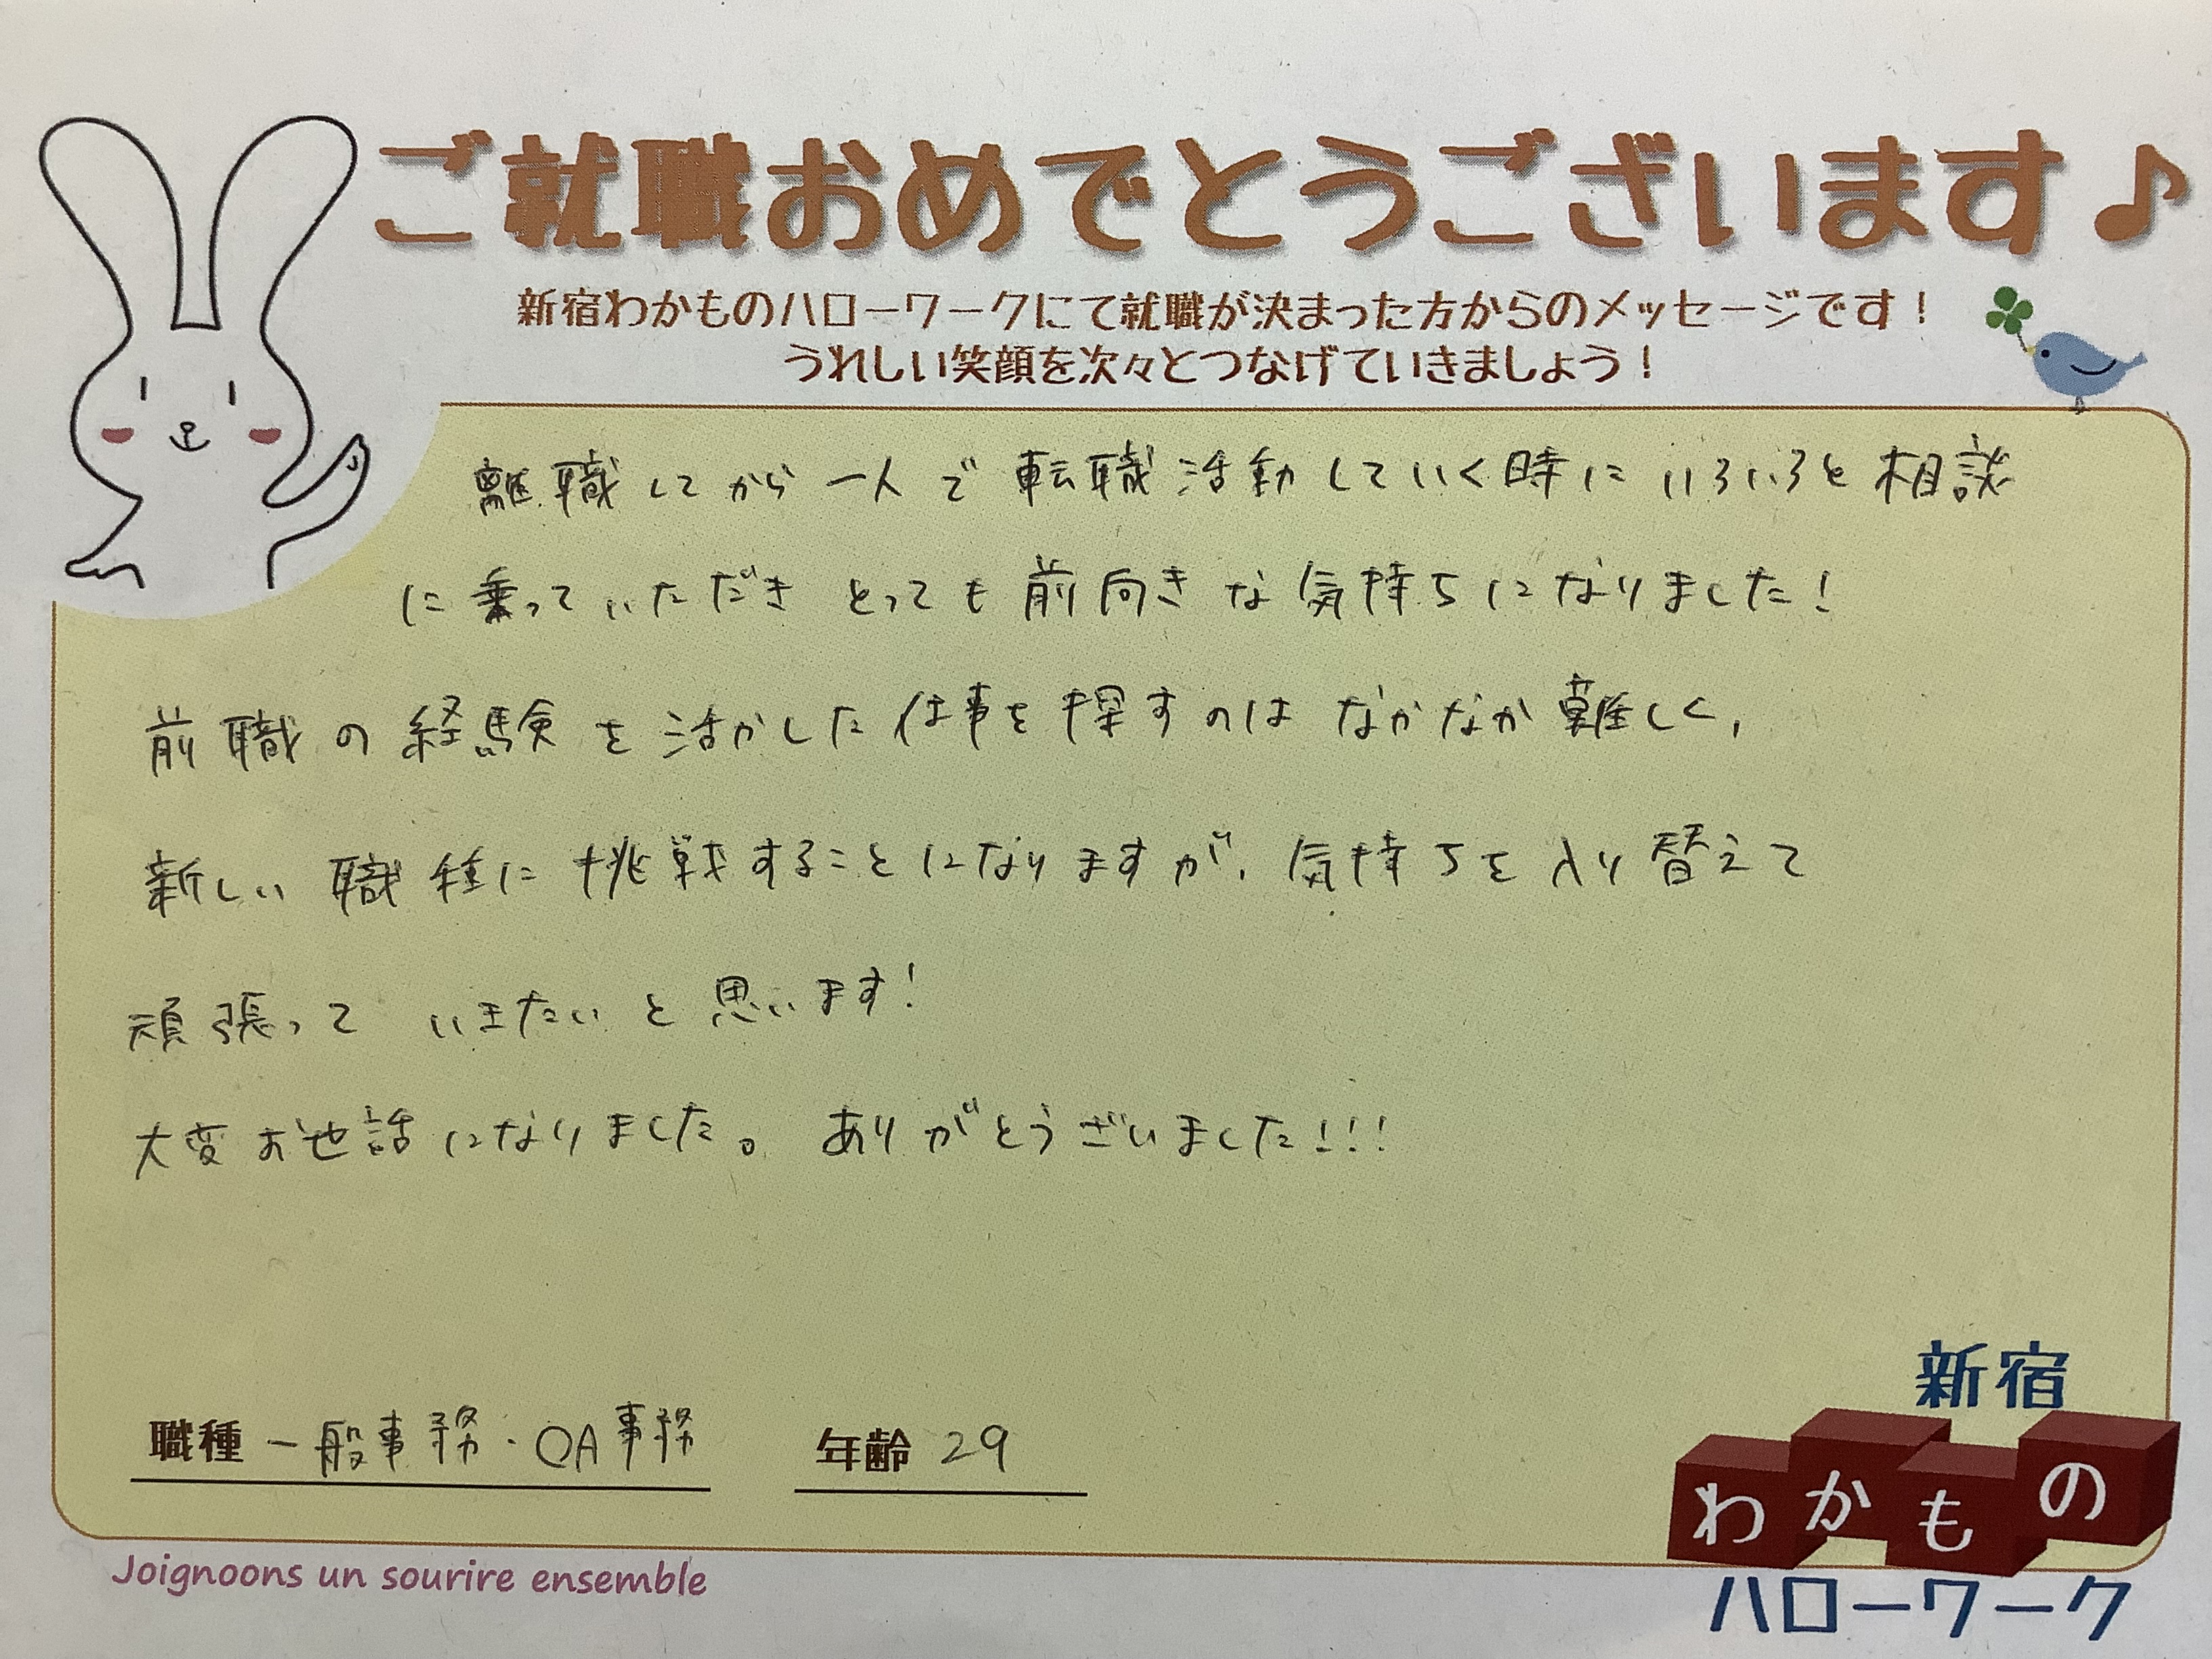 ご就職おめでとうございます♪
新宿わかものハローワークにて就職が決まった方からのメッセージです！
うれしい笑顔を次々とつなげていきましょう！
離職してから一人で転職活動していく時にいろいろと相談
に乗っていただきとっても前向きな気持ちになりました！
前職の経験を活かした仕事を探すのはなかなか難しく、
新しい職種に挑戦することになりますが、気持ちを入り替えて
頑張っていきたいと思います！
大変お世話になりました。ありがとうございました！！！
職種 一般事務・OA事務 年齢 29
新宿
わかもの
ハローワーク
Joignoons un sourire ensemble